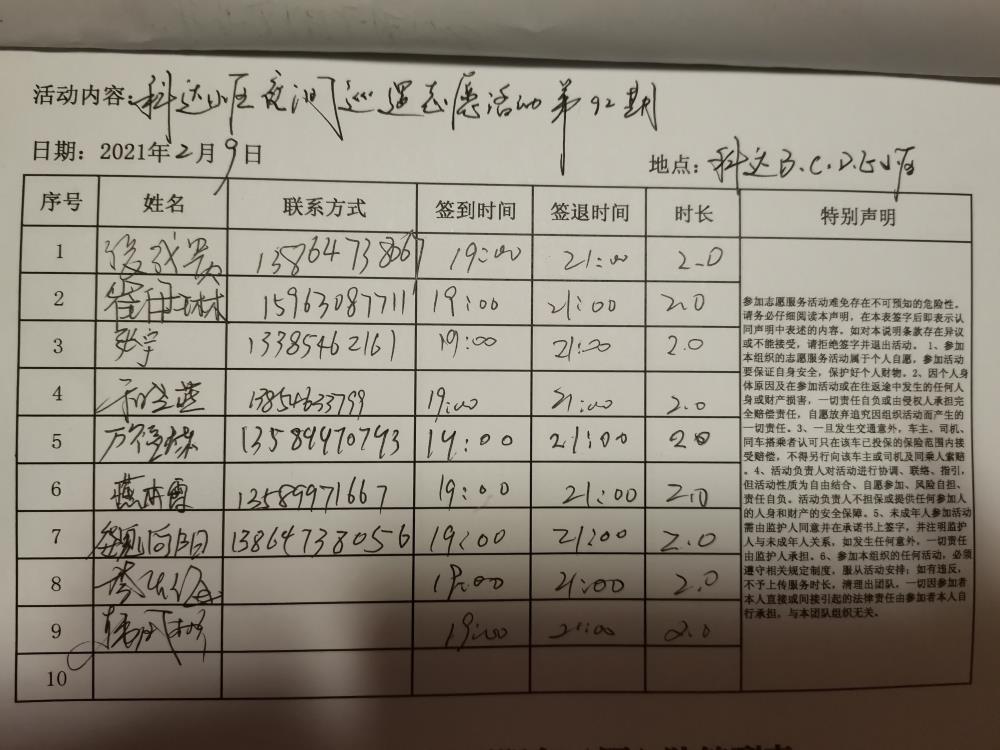 活动内容：科达小区夜间巡逻志愿活动第92期
日期：2021年2月9日
地点：科达B.C.D.E小区
序号 姓名 联系方式 签到时间 签退时间 时长 特别声明
1 13864738667 19:00 21:00 2.0
2 15963087711 19:00 21:00 2.0
3 张宇 13385462161 19:00 21:00 2.0
4 13854633799 19:00 21:00 2.0
5 13589970793 19:00 21:00 2.0
6 13589971667 19:00 21:00 2.0
7 13864738056 19:00 21:00 2.0
8 19:00 21:00 2.0
9 19:00 21:00 2.0
10
参加志愿服务活动难免存在不可预知的危险性。
请务必仔细阅读本声明，在本表签字后即表示认
同声明中表述的内容。如对本说明条款存在异议
或不能接受，请拒绝签字并退出活动。 1、参加
本组织的志愿服务活动属于个人自愿，参加活动
要保证自身安全，保护好个人财物。2、因个人身
体原因及在参加活动或在往返途中发生的任何人
身或财产损害，一切责任自负或由侵权人承担完
全赔偿责任，自愿放弃追究因组织活动而产生的
一切责任。3、一旦发生交通意外，车主、司机、
同车搭乘者认可只在该车已投保的保险范围内接
受赔偿，不得另行向该车主或司机及同乘人索赔
。4、活动负责人对活动进行协调、联络、指引，
但活动性质为自由结合、自愿参加、风险自担、
责任自负。活动负责人不担保或提供任何参加人
的人身和财产的安全保障。5、未成年人参加活动
需由监护人同意并在承诺书上签字，并注明监护人
与未成年人关系，如发生任何意外，一切责任
由监护人承担。6、参加本组织的任何活动，必须
遵守相关规定制度，服从活动安排；如有违反，
不予上传服务时长，清理出团队，一切因参加者
本人直接或间接引起的法律责任由参加者本人自
行承担，与本团队组织无关。